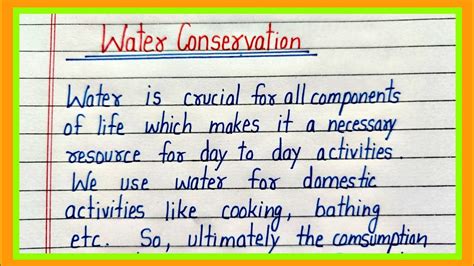 Water Conservation
Water is crucial for all components
of life which makes it a necessary
resource for day to day activities.
We use water for domestic
activities like cooking, bathing
etc. So, ultimately the comsumption